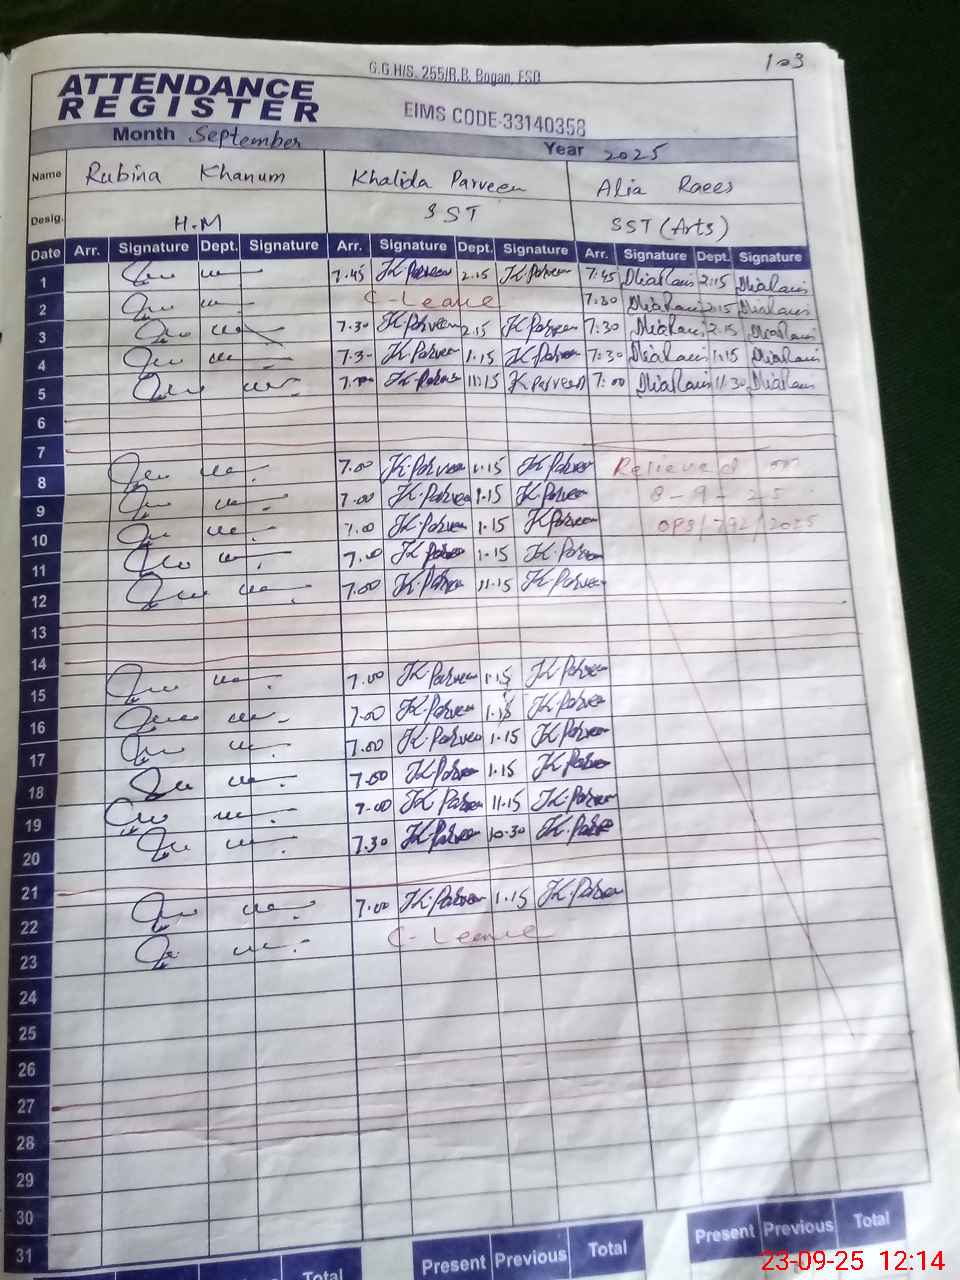 1 to 3
G.G.H/S. 255/R.B. Bogan, FSD
ATTENDANCE
REGISTER
EIMS CODE-33140358
Month September
Year 2025
Name Rubina Khanum Khalida Parveen Alia Raees
Desig. H.M SST SST (Arts)
Date Arr. Signature Dept. Signature Arr. Signature Dept. Signature Arr. Signature Dept. Signature
1 7.45 K.Parveen 2.15 K.Parveen 7:45 2:15
2 C-Leave 7:30 2:15
3 7.30 K.Parveen 2.15 K.Parveen 7:30 2.15
4 7.3- K.Parveen 1.15 K.Parveen 7:30 1:15
5 K.Parveen 11:15 K.Parveen 7:00 11:30
6
7
8 7.00 K.Parveen 1.15 K.Parveen Relieved on
9 7.00 K.Parveen 1.15 K.Parveen 8-9-25
10 7.00 K.Parveen 1.15 K.Parveen /792/2025
11 7.00 K.Parveen 1.15 K.Parveen
12 7.00 K.Parveen 11.15 K.Parveen
13
14
15 7.00 K.Parveen 1.15 K.Parveen
16 7.00 K.Parveen 1.15 K.Parveen
17 7.00 K.Parveen 1.15 K.Parveen
18 7.00 K.Parveen 1.15 K.Parveen
19 7.00 K.Parveen 11.15 K.Parveen
20 7.30 K.Parveen 10.30 K.Parveen
21
22 7.00 K.Parveen 1.15 K.Parveen
23 C-Leave
24
25
26
27
28
29
30
31
Total Present Previous Total Present Previous Total
23-09-25 12:14